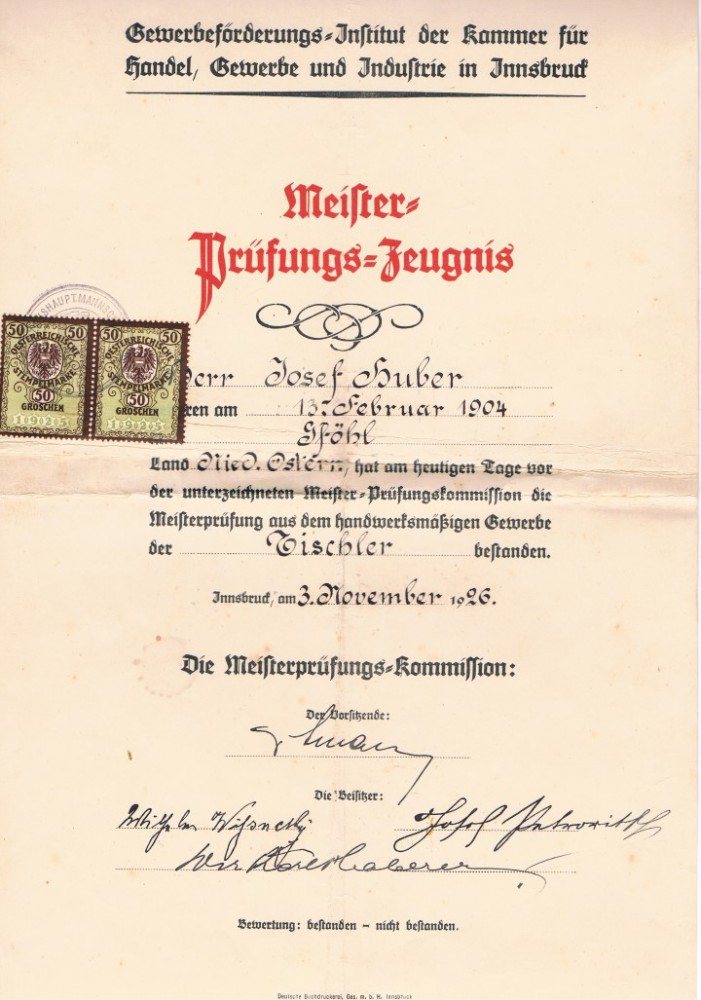 Gewerbeförderungs-Institut der Kammer für
Handel, Gewerbe und Industrie in Innsbruck
Meister-
Prüfungs-Zeugnis
HAUPTMANNSCH
50 50 50 50
ÖSTERREICHISCHE ÖSTERREICHISCHE
STEMPELMARKE STEMPELMARKE
50 50
GROSCHEN GROSCHEN
1925 1925
err Josef Huber
ren am 13. Februar 1904
Gföhl
Land Nied. Österr., hat am heutigen Tage vor
der unterzeichneten Meister-Prüfungskommission die
Meisterprüfung aus dem handwerksmäßigen Gewerbe
der Tischler bestanden.
Innsbruck, am 3. November 1926.
Die Meisterprüfungs-Kommission:
Der Vorsitzende:
Die Beisitzer:
Wilhelm Josef
Bewertung: bestanden - nicht bestanden.
Deutsche Buchdruckerei, Ges. m. b. H. Innsbruck